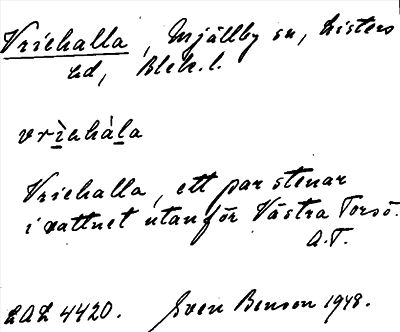 Vriehalla, Mjällby sn, Listers
hd, Blek. l.
vrìehàla
Vriehalla, ett par stenar
i vattnet utanför Västra Torsö.
A.T.
LAL 4420. Sven Benson 1948.